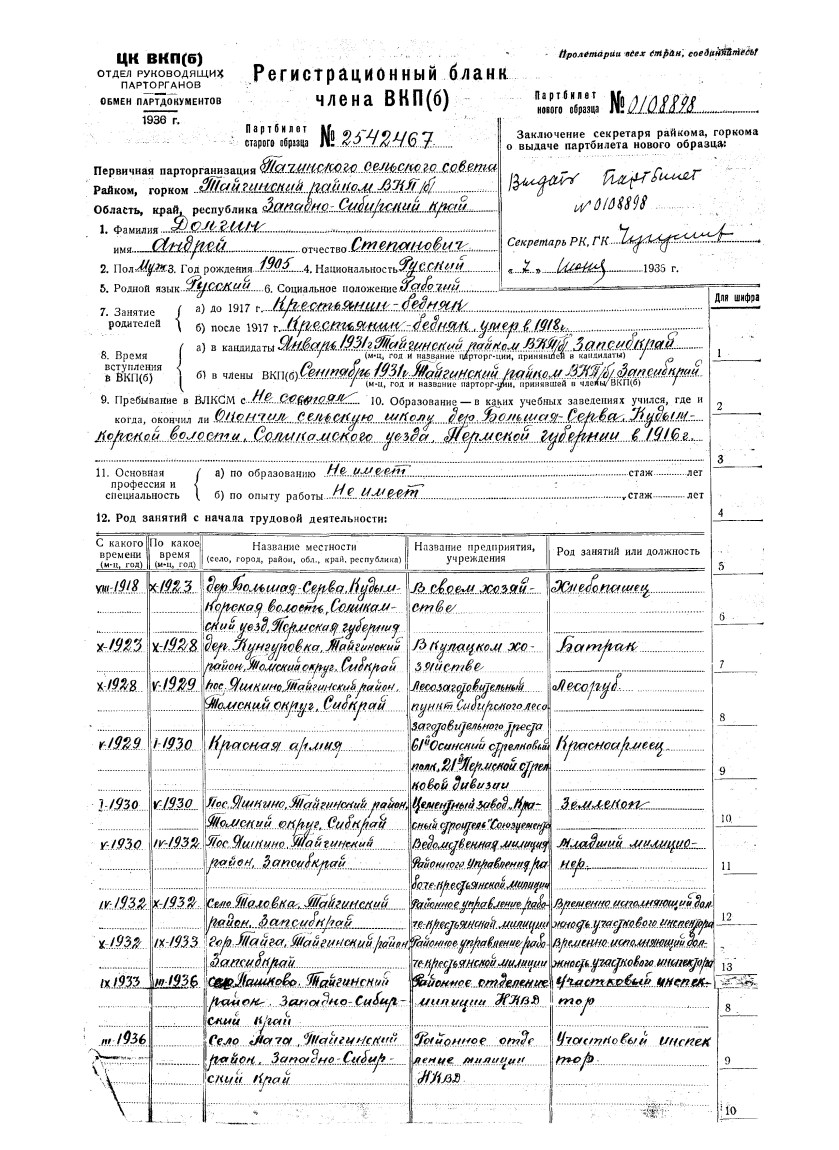 ЦК ВКП(б)
ОТДЕЛ РУКОВОДЯЩИХ
ПАРТОРГАНОВ
ОБМЕН ПАРТДОКУМЕНТОВ
1936 г.
Пролетарии всех стран, соединяйтесь!
Регистрационный бланк
члена ВКП(б)
Партбилет
старого образца № 2542467
Партбилет
нового образца № 0108898
Заключение секретаря райкома, горкома
о выдаче партбилета нового образца:
Выдать Партбилет
№ 0108898
Секретарь РК, ГК
„ 7 „ Июня 1936 г.
Первичная парторганизация Пачинского сельского совета
Райком, горком Тайгинский райком ВКП/б/
Область, край, республика Западно-Сибирский край
1. Фамилия Долгин
имя Андрей отчество Степанович
2. Пол Муж 3. Год рождения 1905 4. Национальность Русский
5. Родной язык Русский 6. Социальное положение Рабочий
7. Занятие родителей
а) до 1917 г. Крестьянин-бедняк
б) после 1917 г. Крестьянин-бедняк, умер в 1918г.
8. Время вступления в ВКП(б)
а) в кандидаты Январь 1931г Тайгинский райком ВКП/б/ Запсибкрай
(м-ц, год и название парторг-ции, принявшей в кандидаты)
б) в члены ВКП(б) Сентябрь 1931г. Тайгинский райком ВКП/б/ Запсибкрай
(м-ц, год и название парторг-ции, принявшей в члены ВКП(б)
9. Пребывание в ВЛКСМ с Не состоял 10. Образование — в каких учебных заведениях учился, где и
когда, окончил ли Окончил сельскую школу дер. Большая-Серва, Кудым-
корской волости, Соликамского уезда, Пермской губернии в 1916 г.
11. Основная профессия и специальность
а) по образованию Не имеет стаж лет
б) по опыту работы Не имеет стаж лет
12. Род занятий с начала трудовой деятельности:
Для шифра
1
2
3
4
5
6
7
8
9
10
11
12
13
8
9
10
С какого времени (м-ц, год) По какое время (м-ц, год) Название местности (село, город, район, обл., край, республика) Название предприятия, учреждения Род занятий или должность
VIII-1918 X-1923 дер Большая-Серва, Кудым- В своем хозяй- Хлебопашец
корская волость, Соликам- стве
ский уезд, Пермская губерния
X-1923 X-1928 дер. Кунгуровка, Тайгинский В кулацком хо- Батрак
район, Томский округ, Сибкрай зяйстве
X-1928 V-1929 пос. Яшкино, Тайгинский район, Лесозаготовительный Лесоруб.
Томский округ, Сибкрай пункт Сибирского лесо
заготовительного треста
V-1929 I-1930 Красная армия 61й Осинский стрелковый Красноармеец
полк, 21й Пермской стрел
ковой дивизии
I-1930 V-1930 Пос. Яшкино, Тайгинский район, Цементный завод „Кра- Землекоп
Томский округ, Сибкрай сный строитель" Союзцемента
V-1930 IV-1932 Пос. Яшкино, Тайгинский Ведомственная милиция Младший милицио-
район, Запсибкрай Районного Управления ра нер.
боче-крестьянской милиции
IV-1932 X-1932 Село Таловка, Тайгинский Районное управление рабо Временно исполняющий дол
район, Запсибкрай че-крестьянской милиции жность участкового инспектора
X-1932 IX-1933 гор. Тайга, Тайгинский район Районное управление рабо Временно исполняющий дол-
Запсибкрай че-крестьянской милиции жность участкового инспектора
IX 1933 III-1936 село Пашково, Тайгинский Районное отделение Участковый инспек-
район, Западно-Сибир- милиции НКВД тор
ский край
III-1936 Село Пача, Тайгинский Районное отде Участковый инспек
район, Западно-Сибир- ление милиции тор.
ский край НКВД